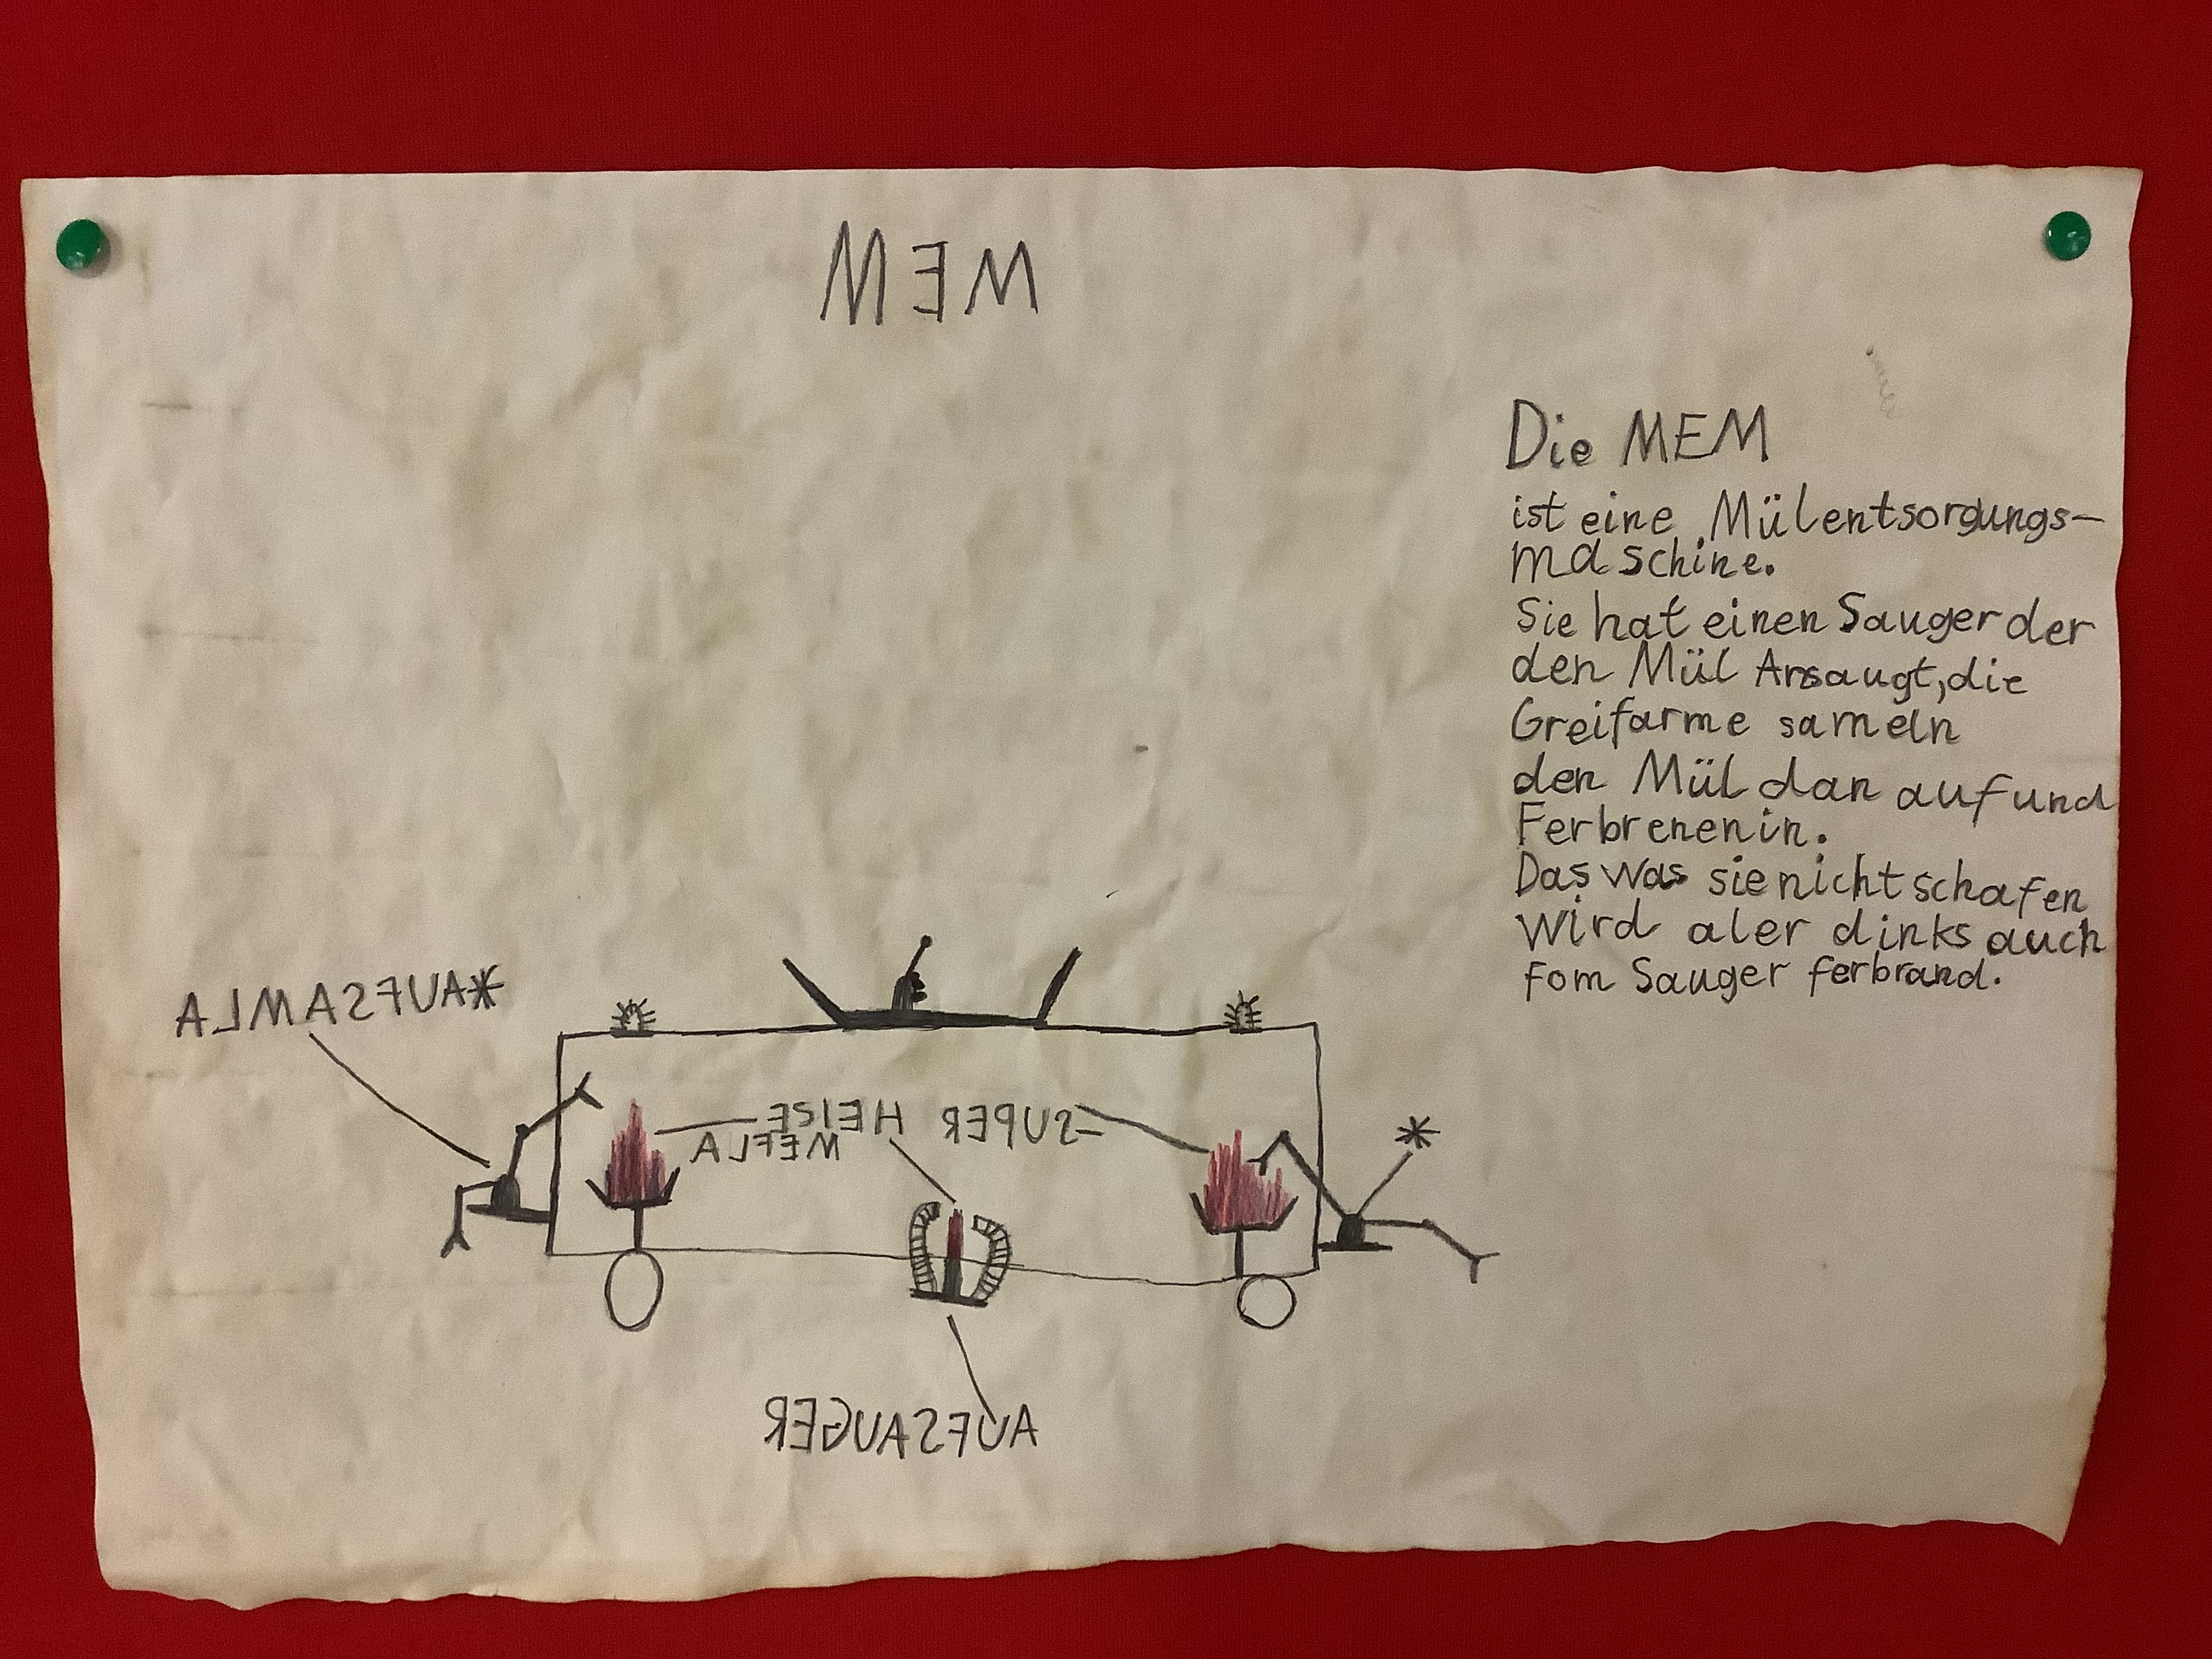 MEM
Die MEM
ist eine Mülentsorgungs-
maschine.
Sie hat einen Sauger der
den Mül Ansaugt, die
Greifarme sameln
den Mül dan auf und
Ferbrenenin.
Das was sie nicht schafen
wird alerdinks auch
fom Sauger ferbrand.
*AUFSAMLA
SUPER- HEISE
WEFLA
*
AUFSAUGER